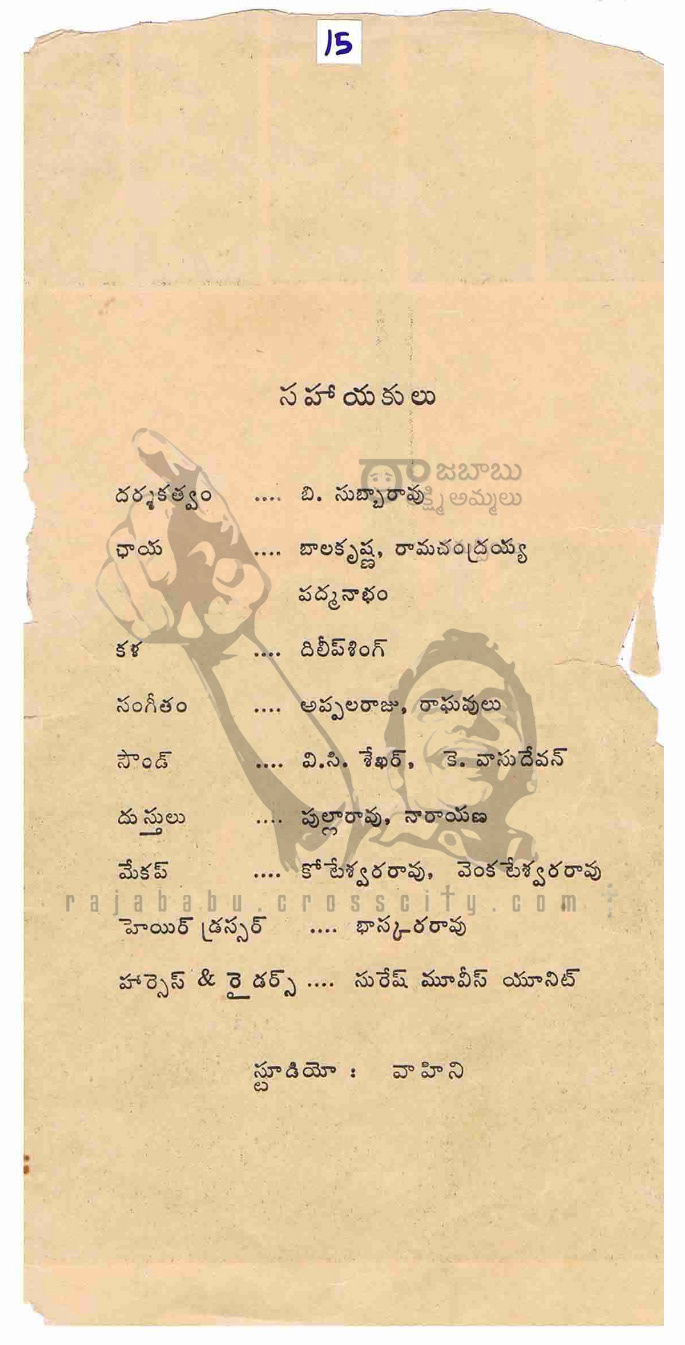 15
సహాయకులు
రాజబాబు
లక్ష్మి అమ్మలు
దర్శకత్వం .... బి. సుబ్బారావు
ఛాయ .... బాలకృష్ణ, రామచంద్రయ్య
పద్మనాభం
కళ .... దిలీప్‌శింగ్
సంగీతం .... అప్పలరాజు, రాఘవులు
సౌండ్ .... వి.సి. శేఖర్, కె. వాసుదేవన్
దుస్తులు .... పుల్లారావు, నారాయణ
మేకప్ .... కోటేశ్వరరావు, వెంకటేశ్వరరావు
rajababu.crosscity.com
హెయిర్ డ్రస్సర్ .... భాస్కరరావు
హార్సెస్ & రైడర్స్ .... సురేష్ మూవీస్ యూనిట్
స్టూడియో : వాహిని